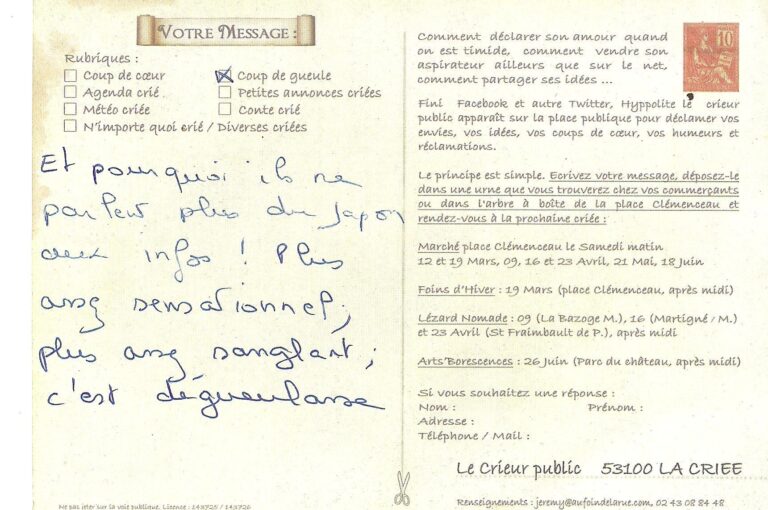 VOTRE MESSAGE :
Rubriques :
Coup de cœur
Coup de gueule
Agenda crié
Petites annonces criées
Météo criée
Conte crié
N'importe quoi crié / Diverses criées
Et pourquoi ils ne
parlent plus du Japon
aux infos ! Plus
assez sensationnel;
plus assez sanglant;
c'est dégueulasse
Ne pas jeter sur la voie publique. Licence : 143725 / 143726
Comment déclarer son amour quand
on est timide, comment vendre son
aspirateur ailleurs que sur le net,
comment partager ses idées ...
10
Fini Facebook et autre Twitter, Hyppolite le crieur
public apparaît sur la place publique pour déclamer vos
envies, vos idées, vos coups de cœur, vos humeurs et
réclamations.
Le principe est simple. Ecrivez votre message, déposez-le
dans une urne que vous trouverez chez vos commerçants
ou dans l'arbre à boîte de la place Clémenceau et
rendez-vous à la prochaine criée :
Marché place Clémenceau le Samedi matin
12 et 19 Mars, 09, 16 et 23 Avril, 21 Mai, 18 Juin
Foins d'Hiver : 19 Mars (place Clémenceau, après midi)
Lézard Nomade : 09 (La Bazoge M.), 16 (Martigné / M.)
et 23 Avril (St Fraimbault de P.), après midi
Arts'Borescences : 26 Juin (Parc du château, après midi)
Si vous souhaitez une réponse :
Nom : Prénom :
Adresse :
Téléphone / Mail :
Le Crieur public 53100 LA CRIEE
Renseignements : jeremy@aufoindelarue.com, 02 43 08 84 48